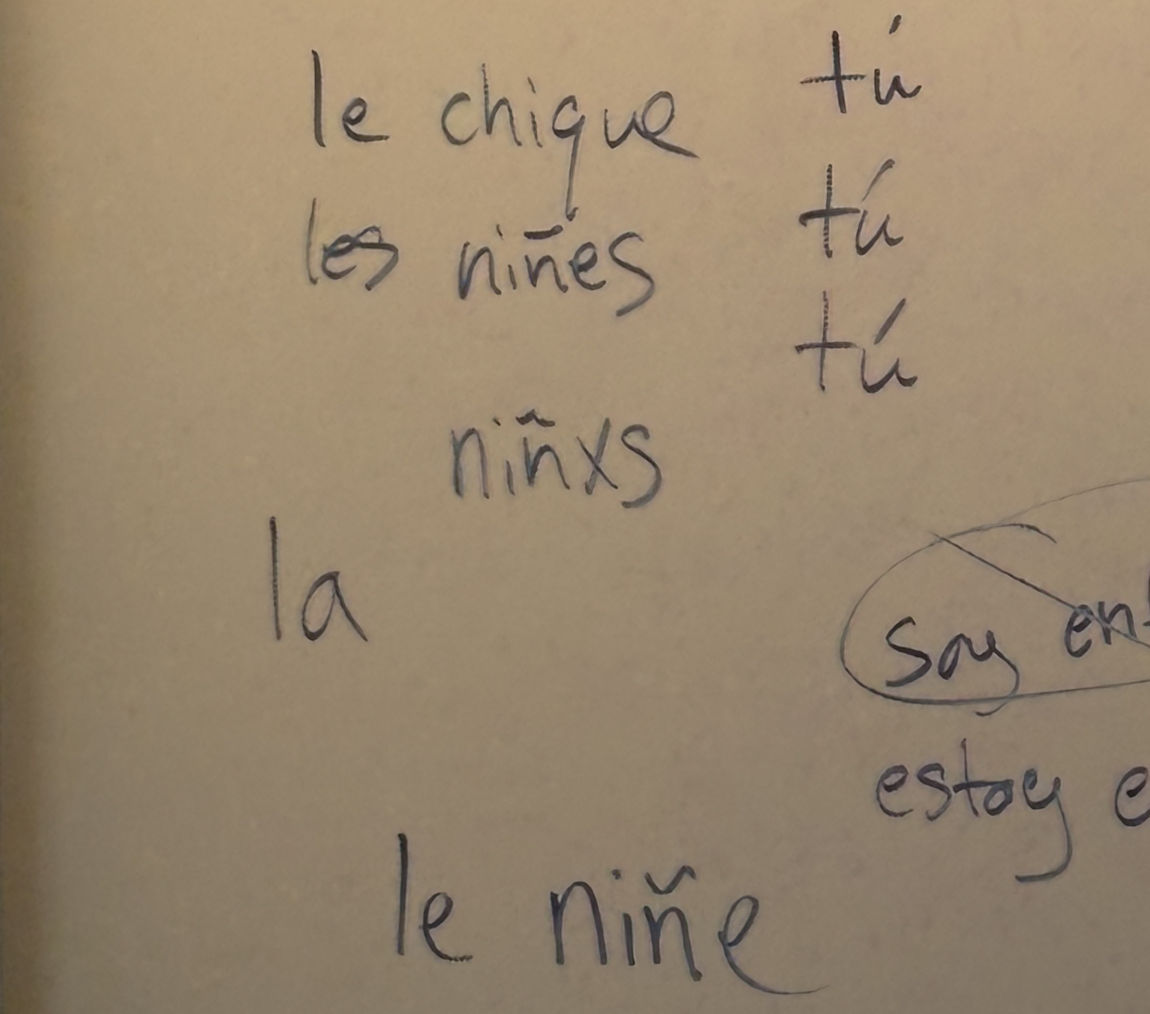 le chique tú
les niñes tú
tú
niñxs
la
soy
estoy
le niñe